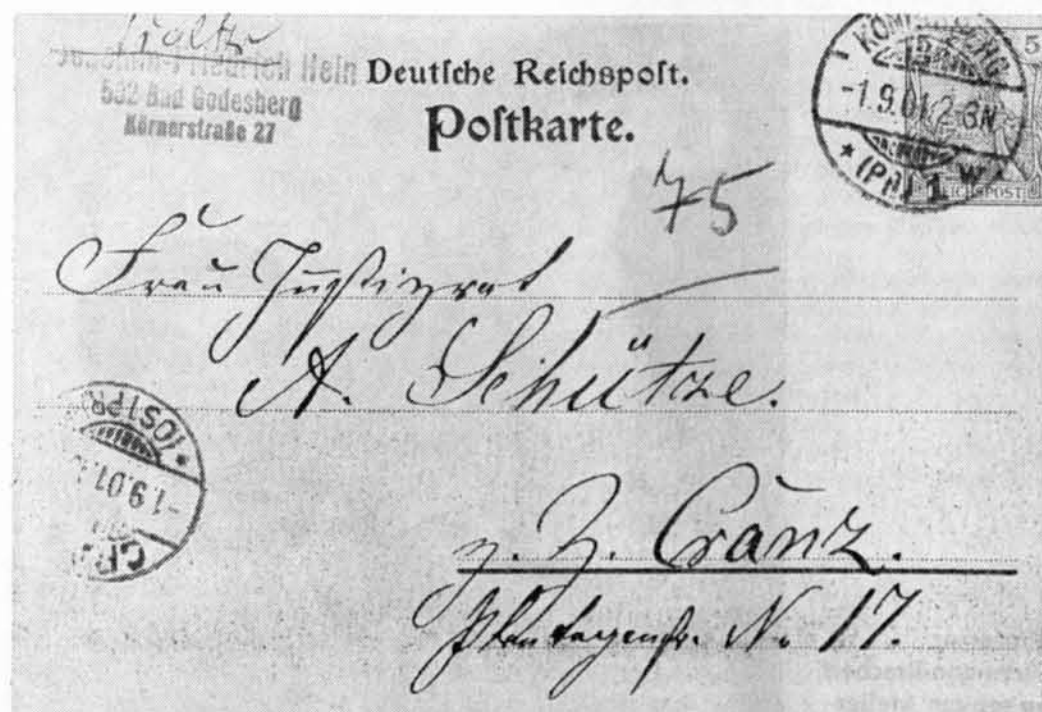 Joachim-Friedrich Hein
532 Bad Godesberg
Körnerstraße 27
Deutsche Reichspost.
Postkarte.
KÖNIGSBERG
-1.9.01.2-3N
* (PR) 1
5
REICHSPOST
75
Frau Justizrat
A. Schütze.
(OSTPR)
-1.9.01
z. Z. Cranz.
Plantagenstr. No 17.